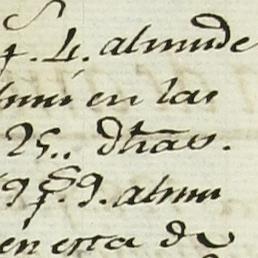 f. 4. almude
lmu en las
25.. dhas.
9 f. 9. almu
en esta de